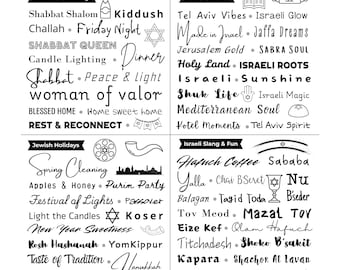 Shabbat Shalom Kiddush
Challah Friday Night
SHABBAT QUEEN
Candle Lighting Dinner
Shabbat Peace & light
woman of valor
BLESSED HOME Home sweet home
REST & RECONNECT
Tel Aviv Vibes Israeli Glow
Made in Israel Jaffa Dreams
Jerusalem Gold SABRA SOUL
Holy Land ISRAELI ROOTS
Israeli Sunshine
Shuk Life Israeli Magic
Mediterranean Soul
Hotel Moments Tel Aviv Spirit
Jewish Holidays
Spring Cleaning
Apples & Honey Purim Party
Festival of Lights
Light the Candles Koser
New Year Sweetness
Rosh Hashanah YomKippur
Taste of Tradition
Hanukkah
Israeli Slang & Fun
Hafuch Coffee Sababa
Yalla Chai B'Seret Nu
Balagan Tagid Toda B'seder
Tov Meod Mazal Tov
Eize Kef Olam Hafuch
Titchadesh Shoko B'sakit
Kapara Shachor Al Lavan